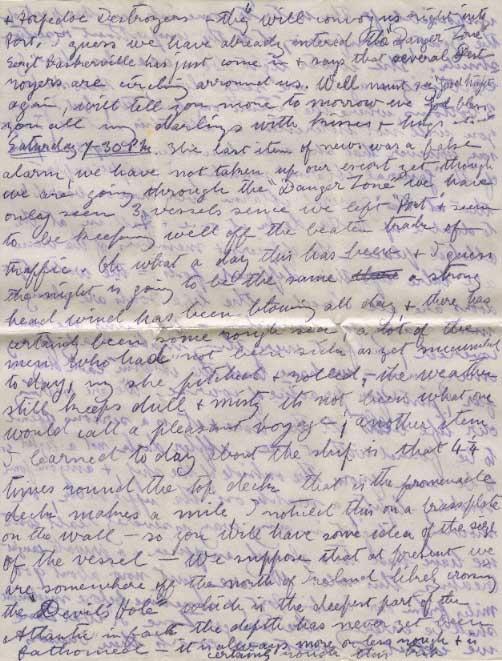 & Torpedoe Destroyers & they will convoy us right into
Port, I guess we have already entered the "Danger Zone"
Sergt Baskerville has just come in & says that several Dest
royers are circling arround us. Well must say good night
again, will tell you more to morrow God bless
you all my darlings with kisses & hugs
Saturday 7 30 P.M. The last item of news was a false
alarm, we have not taken up our escort yet though
we are going through the "Danger Zone" we have
only seen 3 vessels since we left Port & seem
to be keeping well off the beaten track of
traffic. Oh what a day this has been & I guess
the night is going to be the same a strong
head wind has been blowing all day & there has
certainly been some rough sea, a lot of the
men who had not been sick as yet succumbed
to day, my she pitched & rolled, the weather
still keeps dull & misty its not been what one
would call a pleasant voyage; another item
I learned to day about the ship is that 4¼
times round the top deck that is the promenade
deck makes a mile, I noticed this on a brass plate
on the wall – so you will have some idea of the size
of the vessel – We suppose that at present we
are somewhere off the north of Ireland likely crossing
the "Devils Hole" which is the deepest part of the
Atlantic in fact the depth has never yet been
fathomed – it is always more or less rough & is
certainly rough this